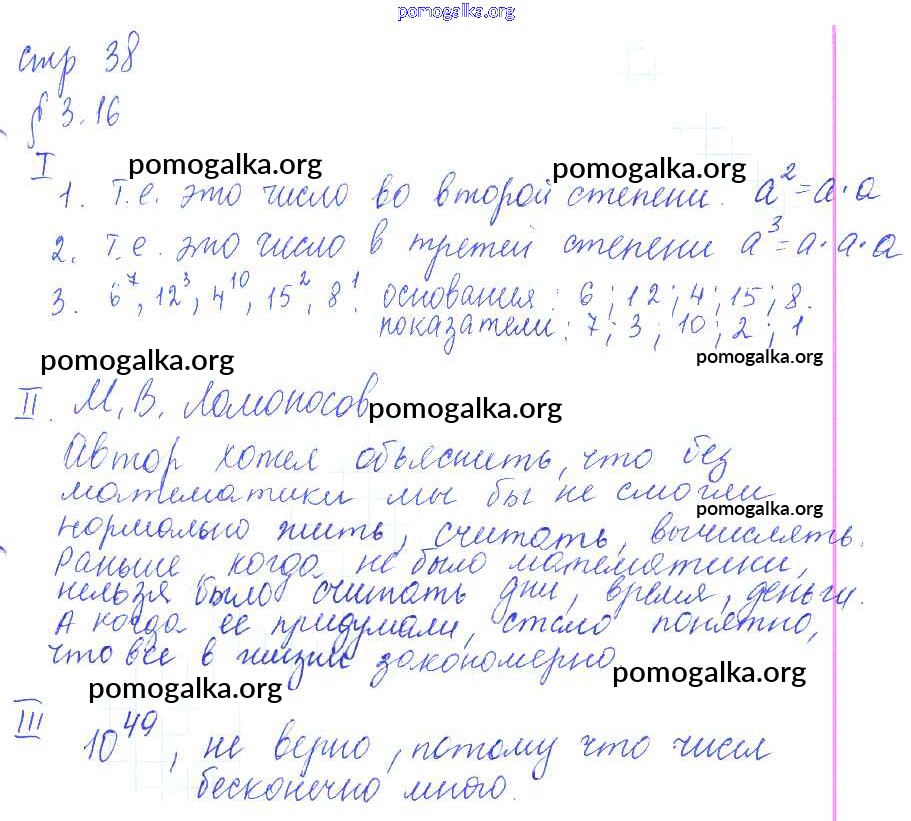 pomogalka.org
стр 38
§ 3.16
I pomogalka.org pomogalka.org
1. т.е. это число во второй степени. a² = a · a
2. т.е. это число в третей степени a³ = a · a · a
3. 6⁷, 12³, 4¹⁰, 15², 8¹. основания: 6 ; 12 ; 4 ; 15 ; 8.
показатели: 7 ; 3 ; 10 ; 2 ; 1
pomogalka.org pomogalka.org
II. М. В. Ломоносов pomogalka.org
Автор хотел объяснить, что без
математики мы бы не смогли
pomogalka.org
нормально жить, считать, вычислять.
Раньше, когда не было математики,
нельзя было считать дни, время, деньги.
А когда её придумали, стало понятно,
что все в жизни закономерно
pomogalka.org pomogalka.org
III
10⁴⁹, не верно, потому что чисел
бесконечно много.